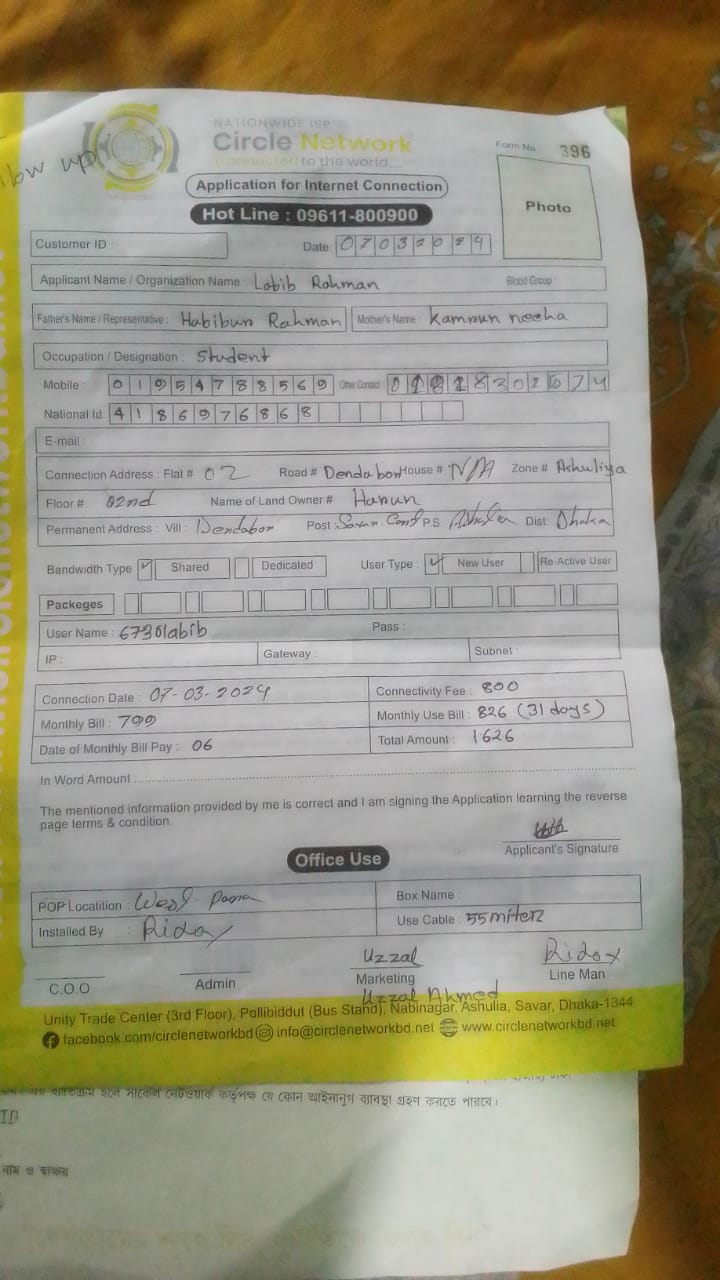 NATIONWIDE ISP
Circle Network
Connected to the world...
Form No 396
Application for Internet Connection
Photo
Hot Line : 09611-800900
Customer ID :
Date: 07032024
Applicant Name / Organization Name : Labib Rahman Blood Group
Father's Name / Representative : Habibun Rahman Mother's Name : Kamrun neeha
Occupation / Designation : Student
Mobile : 01954788569 Other Contact
National Id: 4186976868
E-mail :
Connection Address : Flat # 02 Road # Dendabor House # N/A Zone # Ashuliya
Floor # 02nd Name of Land Owner # Harun
Permanent Address : Vill : Dendabor Post : Savar Cant P.S. Ashulia Dist: Dhaka
Bandwidth Type ✓ Shared Dedicated User Type : ✓ New User Re-Active User
Packeges
User Name : Pass :
IP : Gateway : Subnet :
Connection Date : 07-03-2024 Connectivity Fee : 800
Monthly Bill : 799 Monthly Use Bill : 826 (31 days)
Date of Monthly Bill Pay : 06 Total Amount : 1626
In Word Amount :
The mentioned information provided by me is correct and I am signing the Application learning the reverse
page terms & condition.
Applicant's Signature
Office Use
POP Localtition : West Box Name :
Installed By : Riday Use Cable : 55 miter
Uzzal Ridoy
C.O.O Admin Marketing Line Man
Uzzal Ahmed
Unity Trade Center (3rd Floor), Pollibiddut (Bus Stand), Nabinagar, Ashulia, Savar, Dhaka-1344
facebook.com/circlenetworkbd info@circlenetworkbd.net www.circlenetworkbd.net
হলে সার্কেল নেটওয়ার্ক কর্তৃপক্ষ যে কোন আইনানুগ ব্যবস্থা গ্রহণ করতে পারবে।
ID
নাম ও স্বাক্ষর